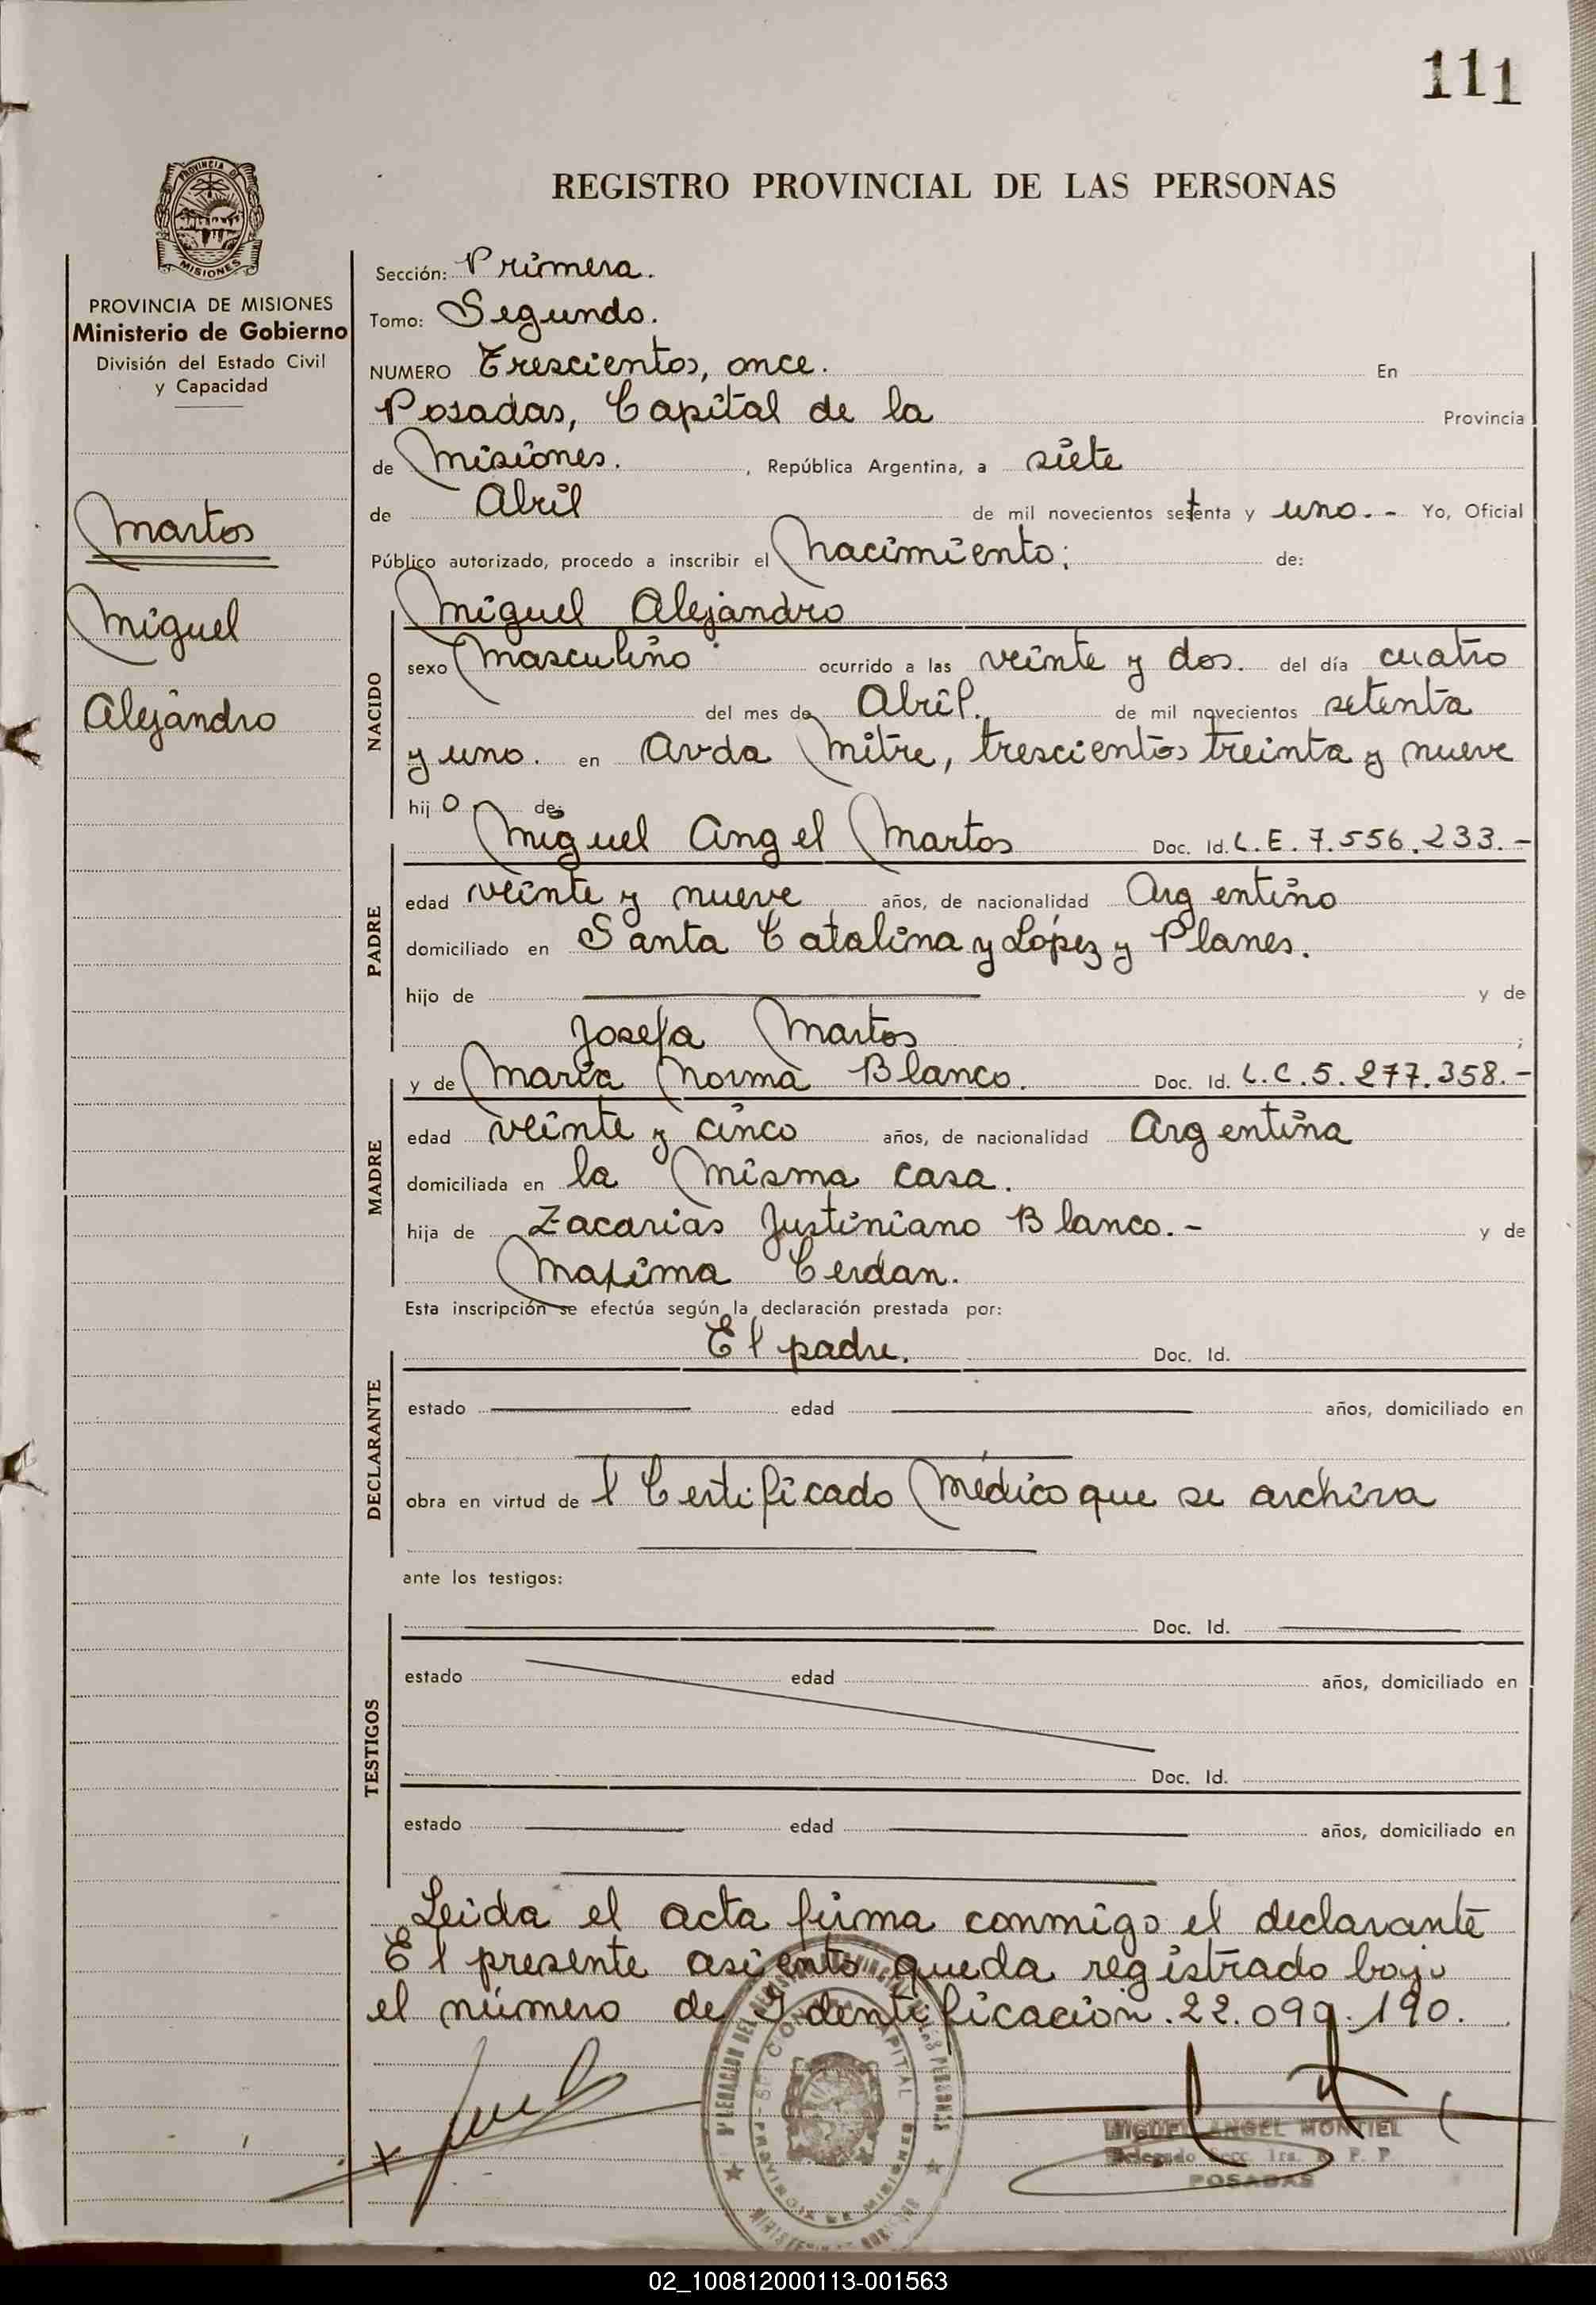 111
PROVINCIA DE
MISIONES
PROVINCIA DE MISIONES
Ministerio de Gobierno
División del Estado Civil
y Capacidad
Martos
Miguel
Alejandro
REGISTRO PROVINCIAL DE LAS PERSONAS
Sección: Primera.
Tomo: Segundo.
NUMERO Trescientos, once. En
Posadas, Capital de la Provincia
de Misiones. , República Argentina, a siete
de Abril de mil novecientos setenta y uno. - Yo, Oficial
Público autorizado, procedo a inscribir el Nacimiento: de:
NACIDO
Miguel Alejandro
sexo Masculino ocurrido a las veinte y dos. del día cuatro
del mes de Abril. de mil novecientos setenta
y uno. en Avda Mitre, trescientos treinta y nueve
hij o de:
PADRE
Miguel Angel Martos Doc. Id. L.E. 7.556.233.-
edad veinte y nueve años, de nacionalidad Argentino
domiciliado en Santa Catalina y López y Planes.
hijo de y de
Josefa Martos ;
MADRE
y de María Norma Blanco. Doc. Id. L.C. 5.277.358.-
edad veinte y cinco años, de nacionalidad Argentina
domiciliada en la misma casa.
hija de Zacarias Justiniano Blanco.- y de
Maxima Cerdan.
Esta inscripción se efectúa según la declaración prestada por:
DECLARANTE
El padre. Doc. Id.
estado edad años, domiciliado en
obra en virtud de l Certificado Médico que se archiva
ante los testigos:
TESTIGOS
Doc. Id.
estado edad años, domiciliado en
Doc. Id.
estado edad años, domiciliado en
Leida el acta firma conmigo el declarante
El presente asiento queda registrado bajo
el número de Identificación. 22.099.190.
MIGUEL ANGEL MONTIEL
Delegado Secc. 1ra. R. P. P.
POSADAS
02_100812000113-001563